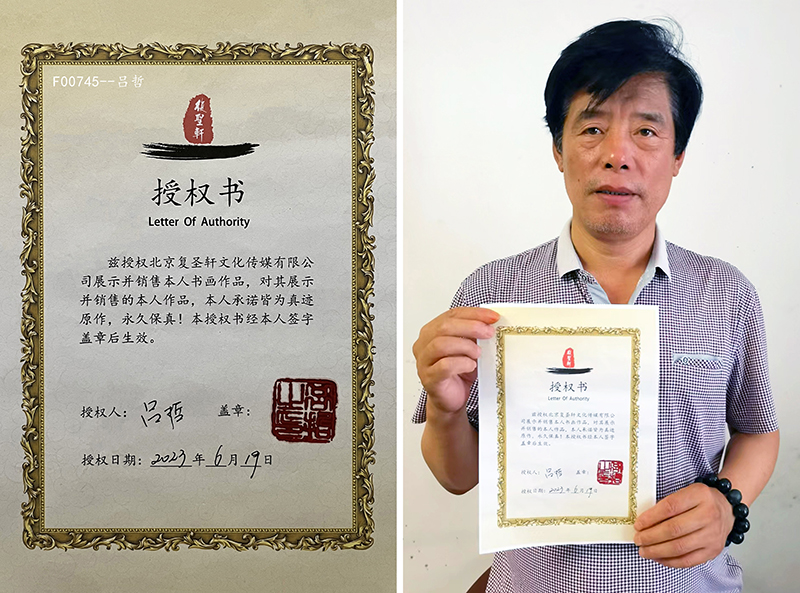 F00745--吕哲
復聖軒
授权书
Letter Of Authority
兹授权北京复圣轩文化传媒有限公
司展示并销售本人书画作品，对其展示
并销售的本人作品，本人承诺皆为真迹
原作，永久保真！本授权书经本人签字
盖章后生效。
授权人：吕哲 盖章：
授权日期：2023年6月19日
復聖軒
授权书
Letter Of Authority
兹授权北京复圣轩文化传媒有限公
司展示并销售本人书画作品，对其展示
并销售的本人作品，本人承诺皆为真迹
原作，永久保真！本授权书经本人签字
盖章后生效。
授权人：吕哲 盖章：
授权日期：2023年6月19日